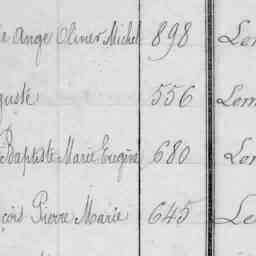 e Ange Oliver Michel 898 Lem
guste 556 Lem
Baptiste Marie Eugène 680 Lem
çois Pierre Marie 645 Le